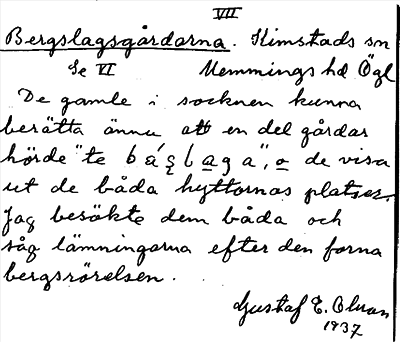 VII
Bergslagsgårdarna. Kimstads sn
Se VI Memmings hd Ögl
De gamle i socknen kunna
berätta ännu att en del gårdar
hörde "te báʂlaga", o de visa
ut de båda hyttornas platser.
Jag besökte dem båda och
såg lämningarna efter den forna
bergsrörelsen.
Gustaf E. Olsson
1937